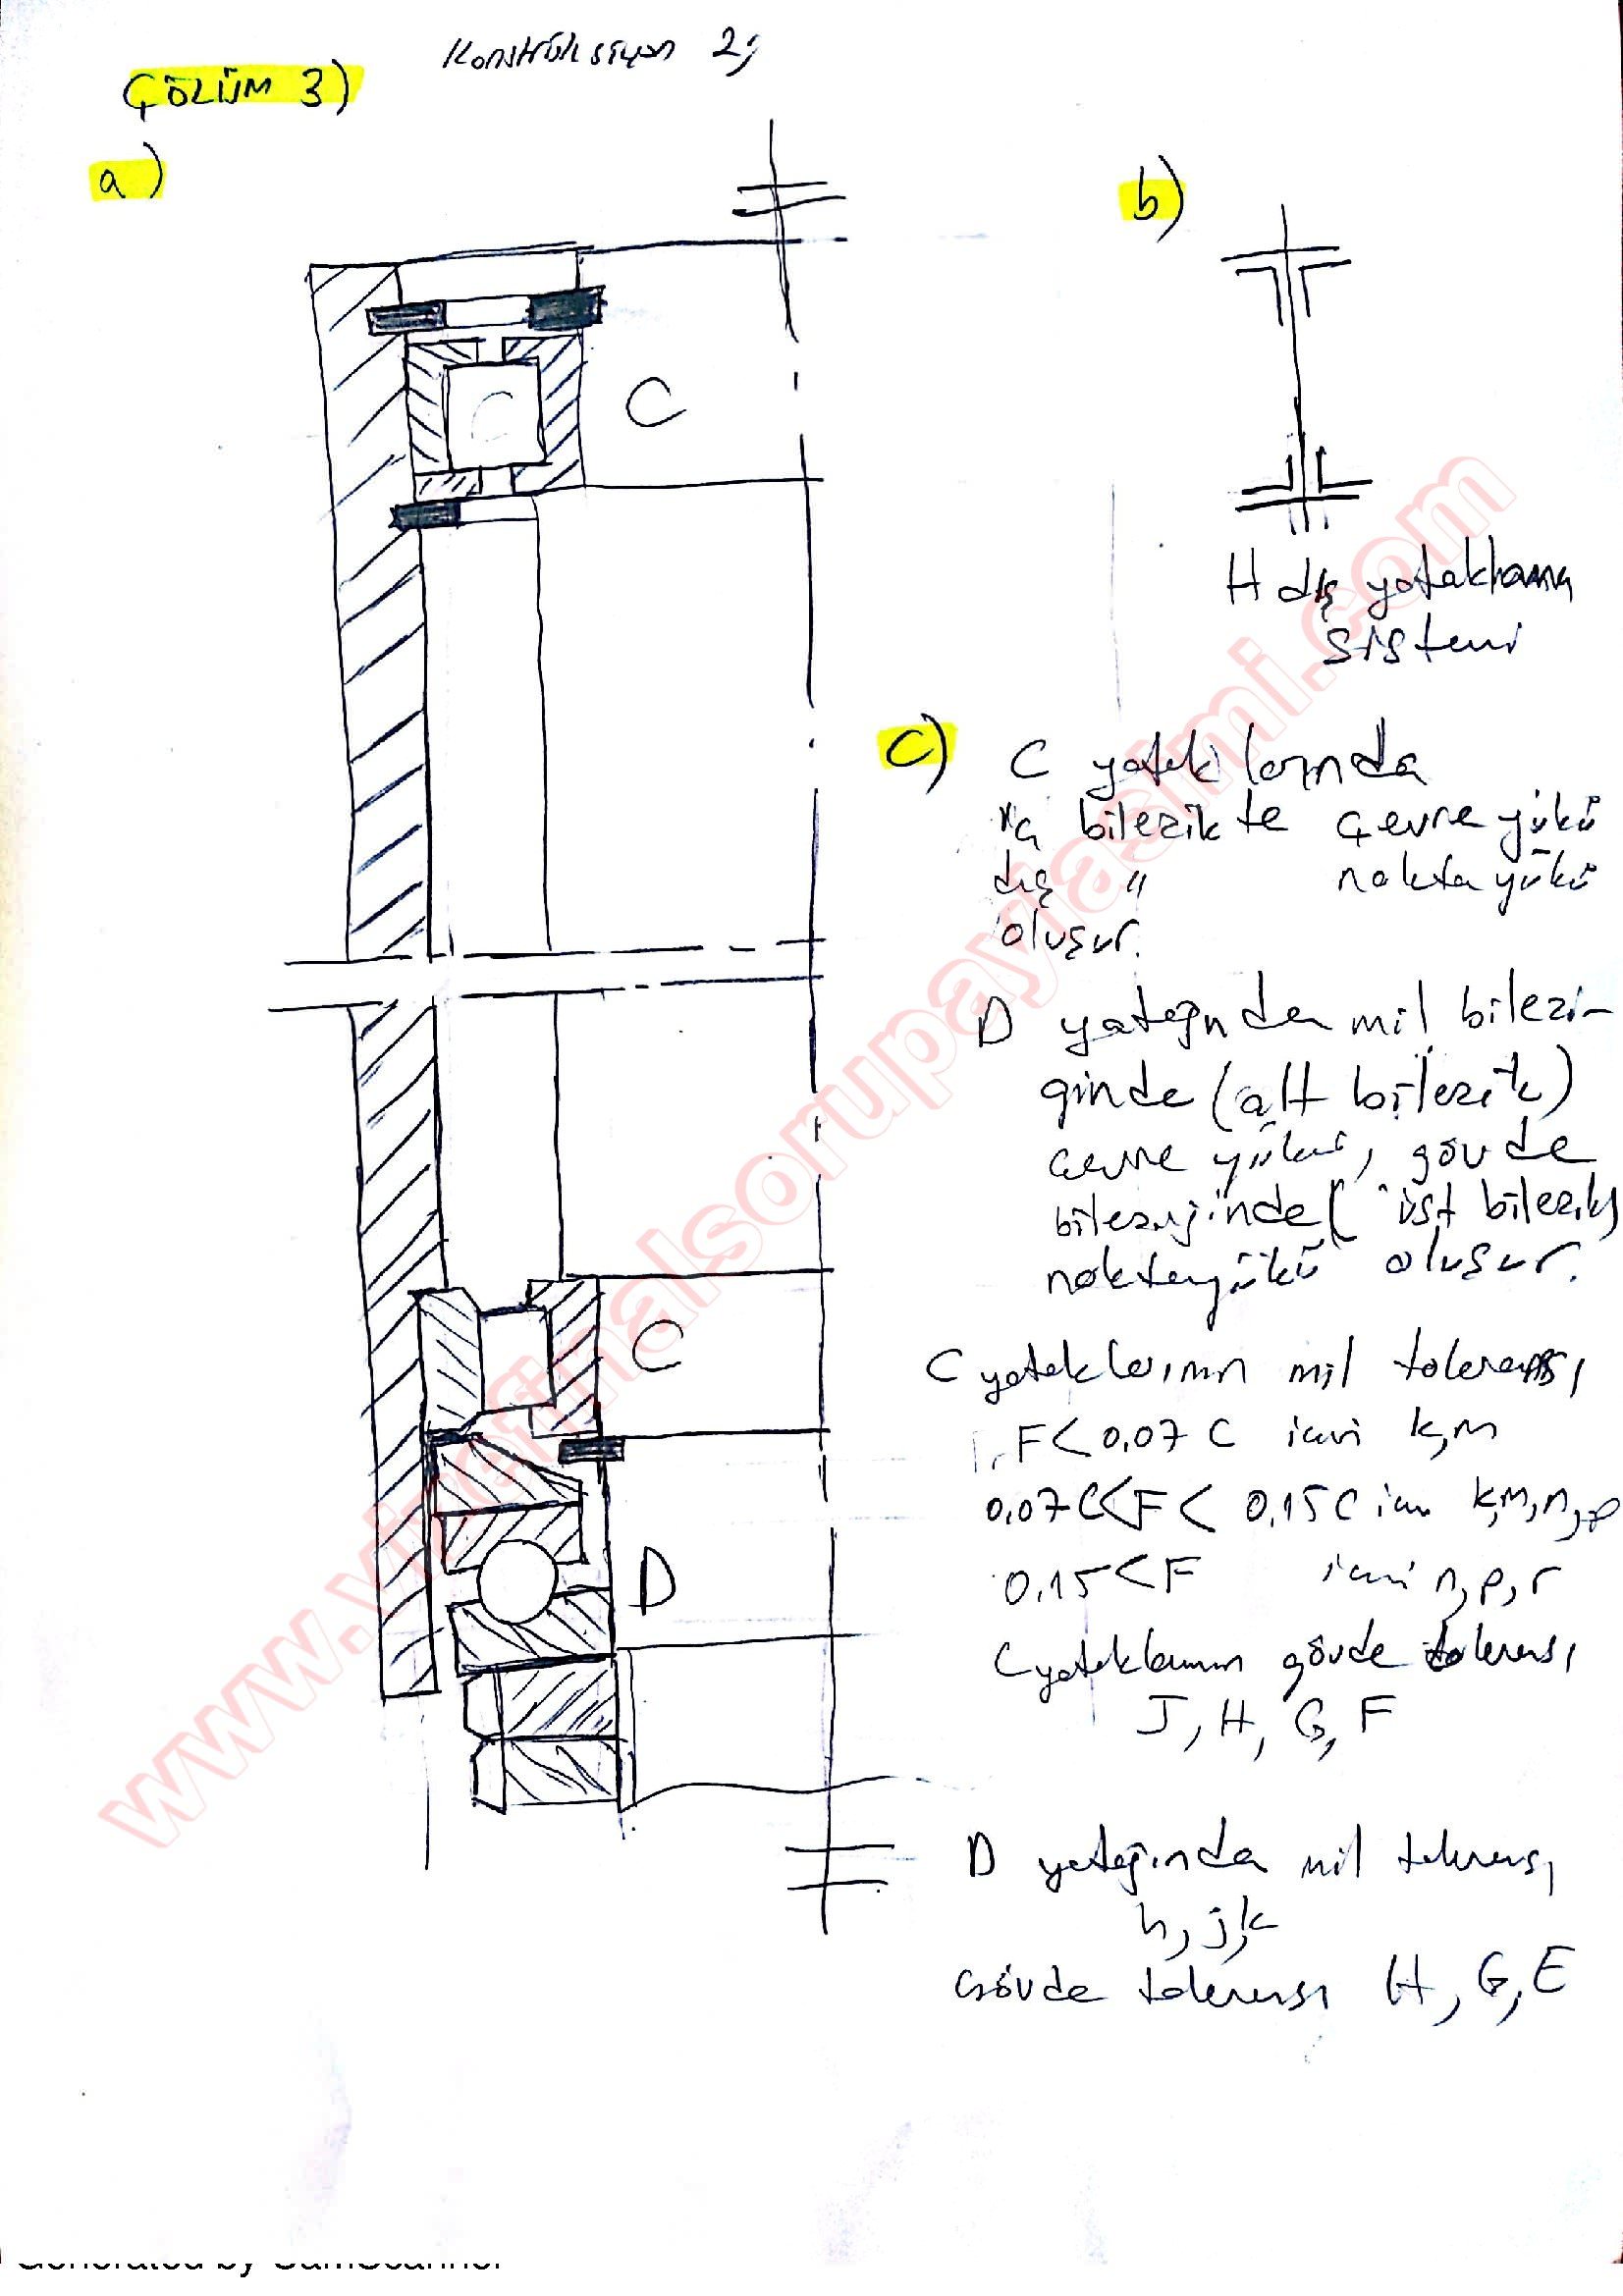 Konstrüksiyon 2;
ÇÖLÜM 3)
a)
C
C
C
D
b)
H dış yataklama
sistemi
c) C yataklarında
iç bilezikte çevre yükü
dış " nokta yükü
oluşur.
D yatağında mil bilezi-
ğinde (alt bilezik)
çevre yükü, gövde
bileziğinde (üst bilezik)
nokta yükü oluşur.
C yataklarının mil toleransı,
F<0,07 C için k,m
0,07C<F< 0,15C için k,m,n,p
0,15<F için n,p,r
C yataklarının gövde toleransı
J, H, G, F
D yatağında mil toleransı
h, j, k
Gövde toleransı H, G, E
www.vizefinalsorupaylasimi.com
Generated by CamScanner